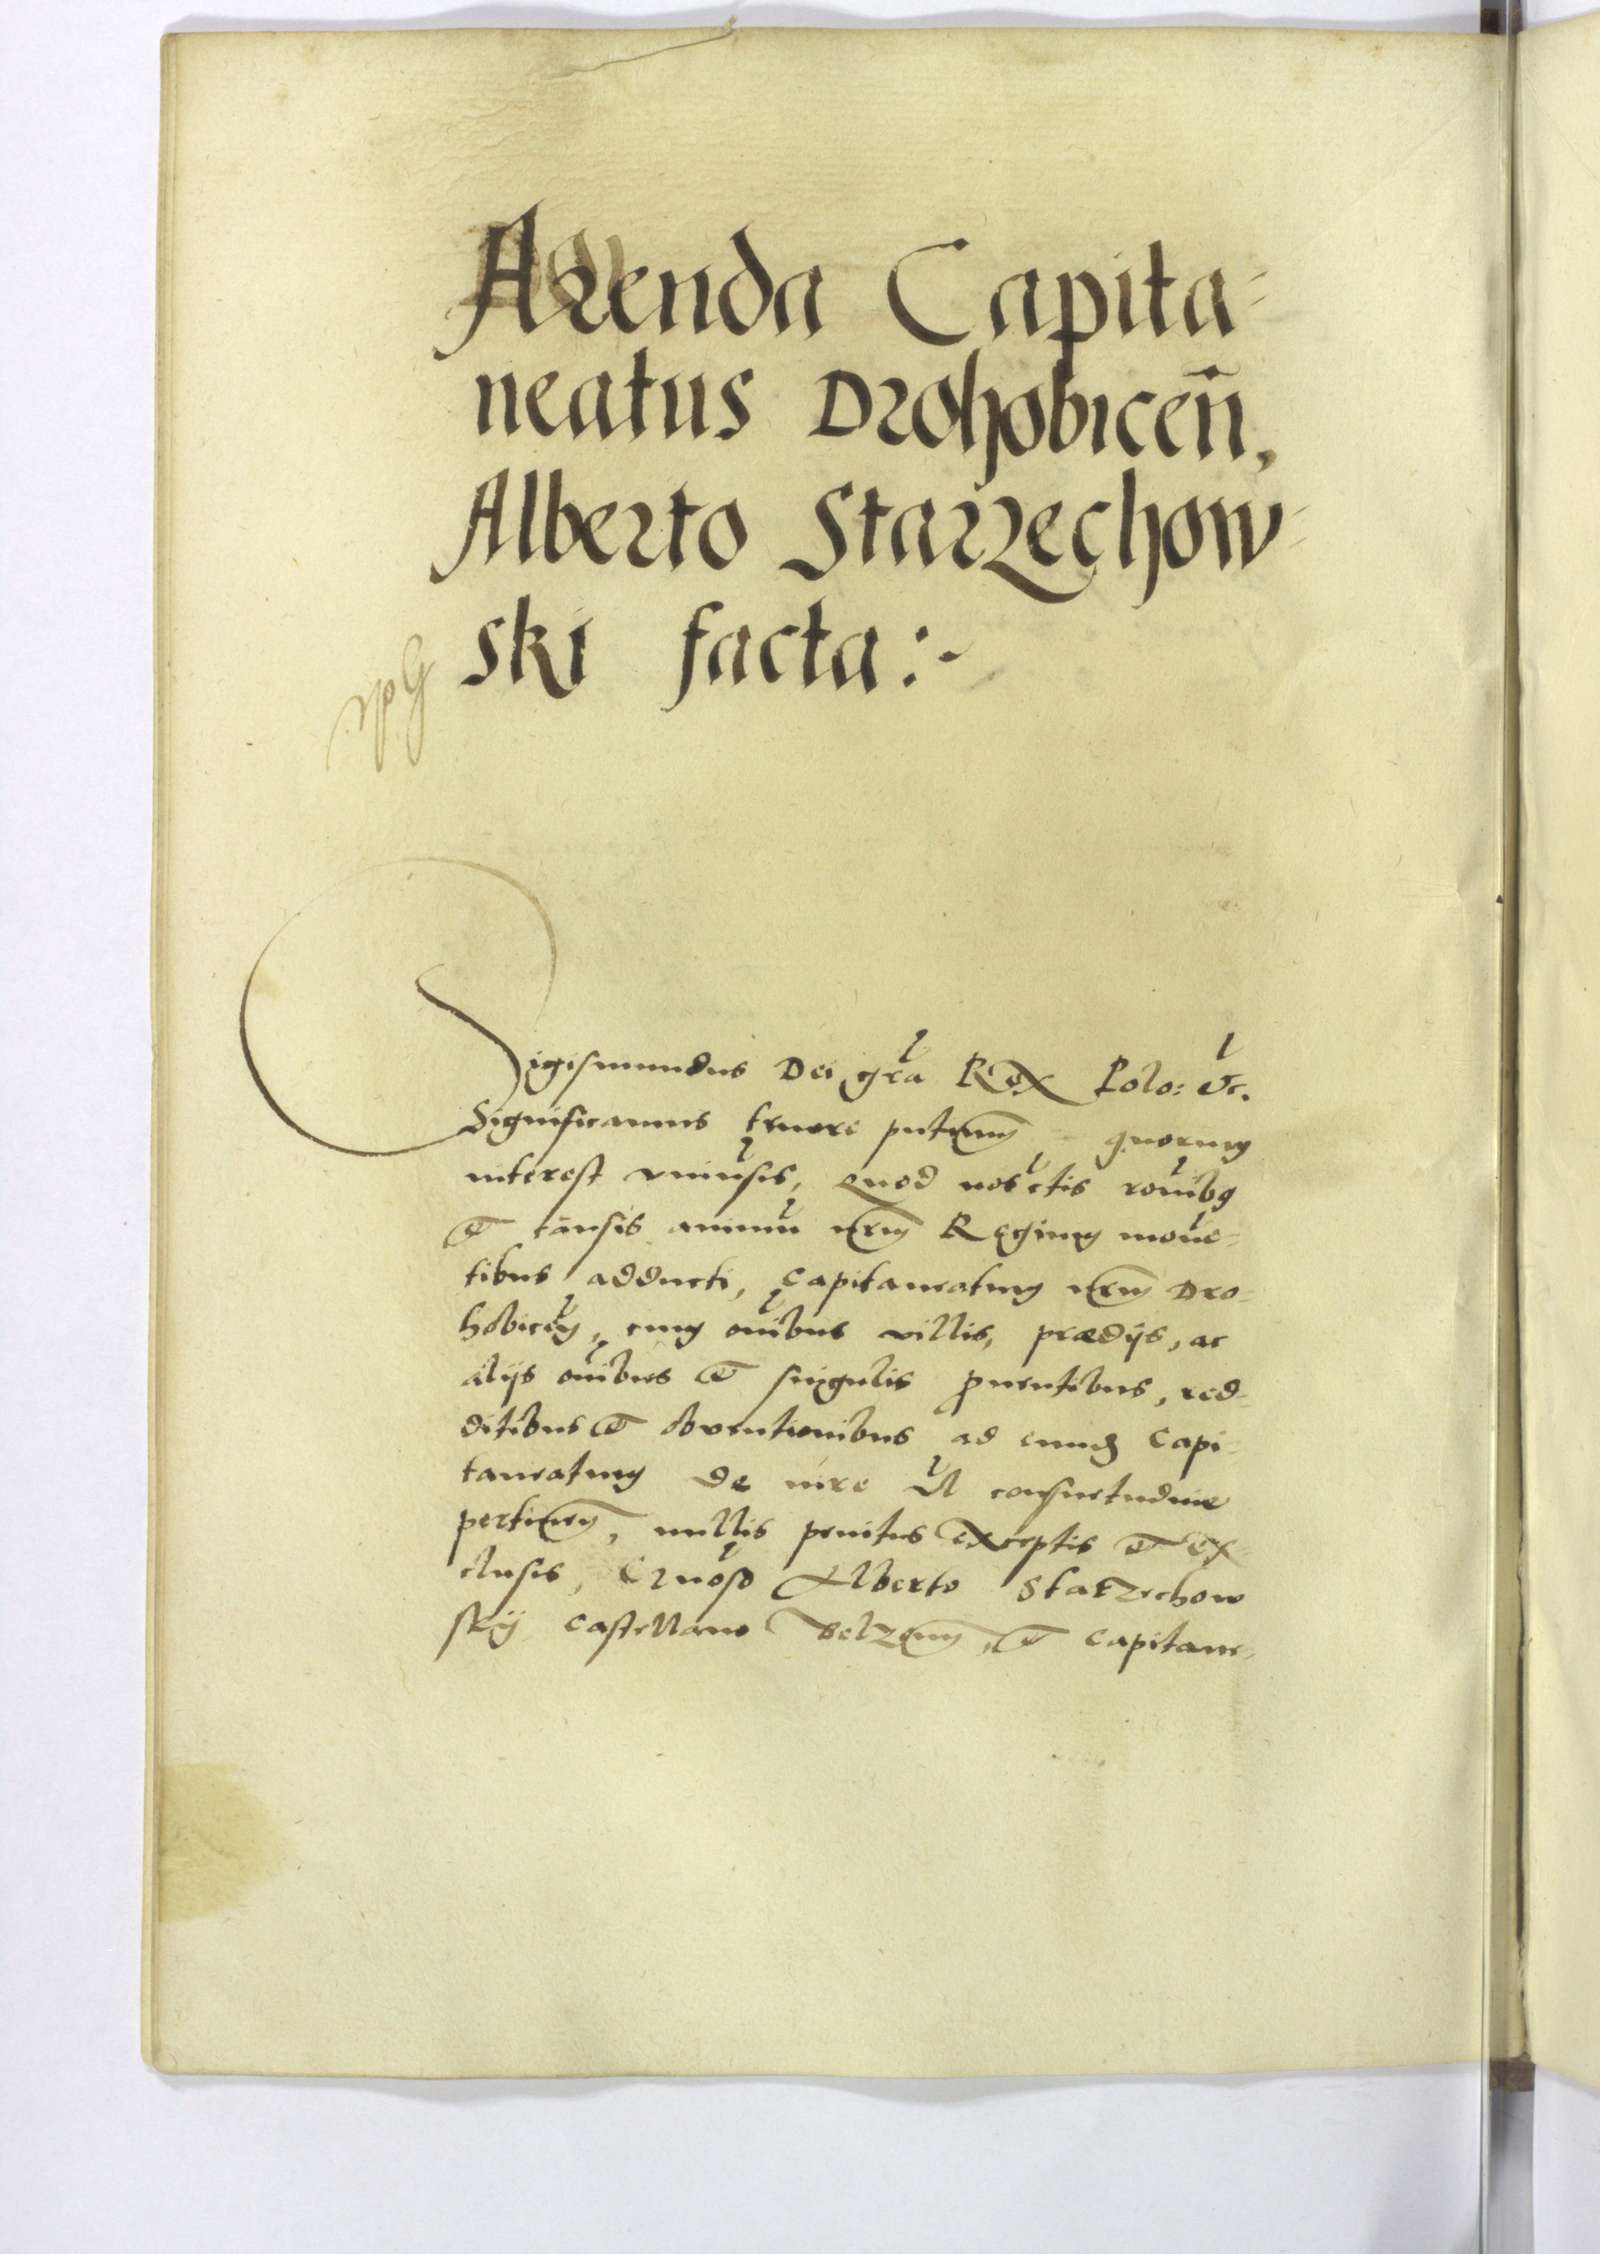 Arenda Capita-
neatus Drohobicen̄,
Alberto Starzechow-
ski facta:~
Sigismundus Dei gra Rex Polo: &c.
Significamus tenore putium quorum
interest vniusis, Quod nos ctis ronibus
et causis animu nrm Regium moue-
tibus adducti, Capitaneatum nrm Dro-
hobiceń, cum oibus villis, prædijs, ac
alijs oibus et singulis puentibus, red-
ditibus et obuentionibus ad eundẽ Capi-
taneatum de iure vl consuetudine
pertinen, nullis penitus exceptis et ex-
clusis, Gnoso Alberto Starzechow
skij Castellano Belzeń, et Capitane-